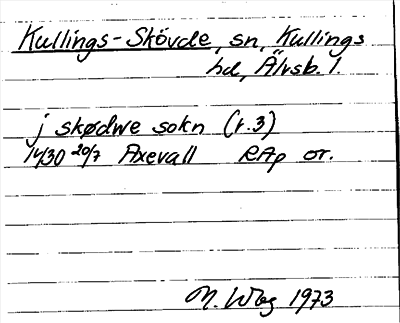 Kullings-Skövde, sn, Kullings
hd, Älvsb. l.
j skødwe sokn (r.3)
1430 20/7 Axevall RAp or.
M. Wbg 1973